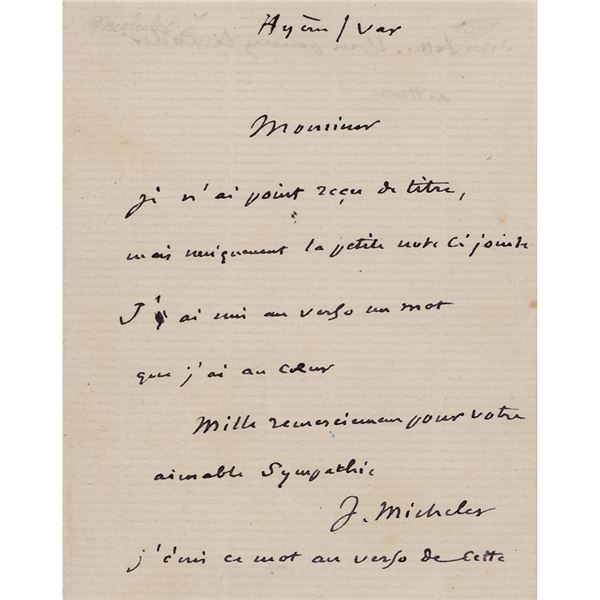 Hyères / Var
Monsieur
je n'ai point reçu de titre,
mais uniquement la petite note ci jointe
J'y ai mis au verso un mot
que j'ai au cœur
Mille remerciemens pour votre
aimable sympathie
J. Michelet
j'écris ce mot au verso de cette